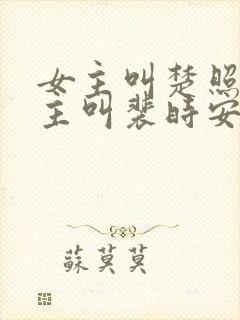 女主叫楚照
主叫裴时安
蘇莫莫